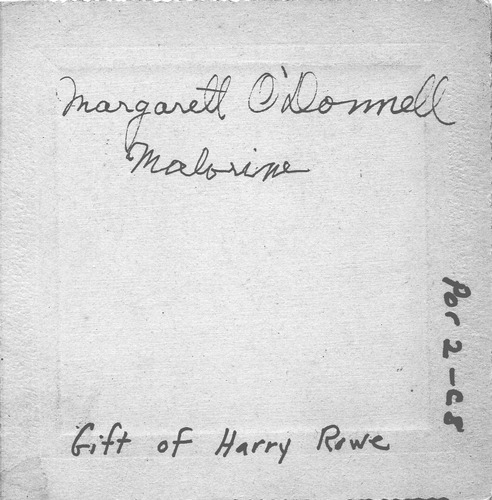 Margarett O'Donnell
Malorine
Por 2-C8
Gift of Harry Rowe